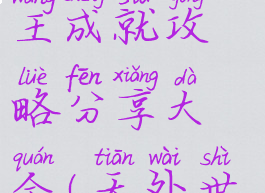 王成就攻
lüè fēn xiǎng dà
略分享大
quán tiān wài shì
全(天外世